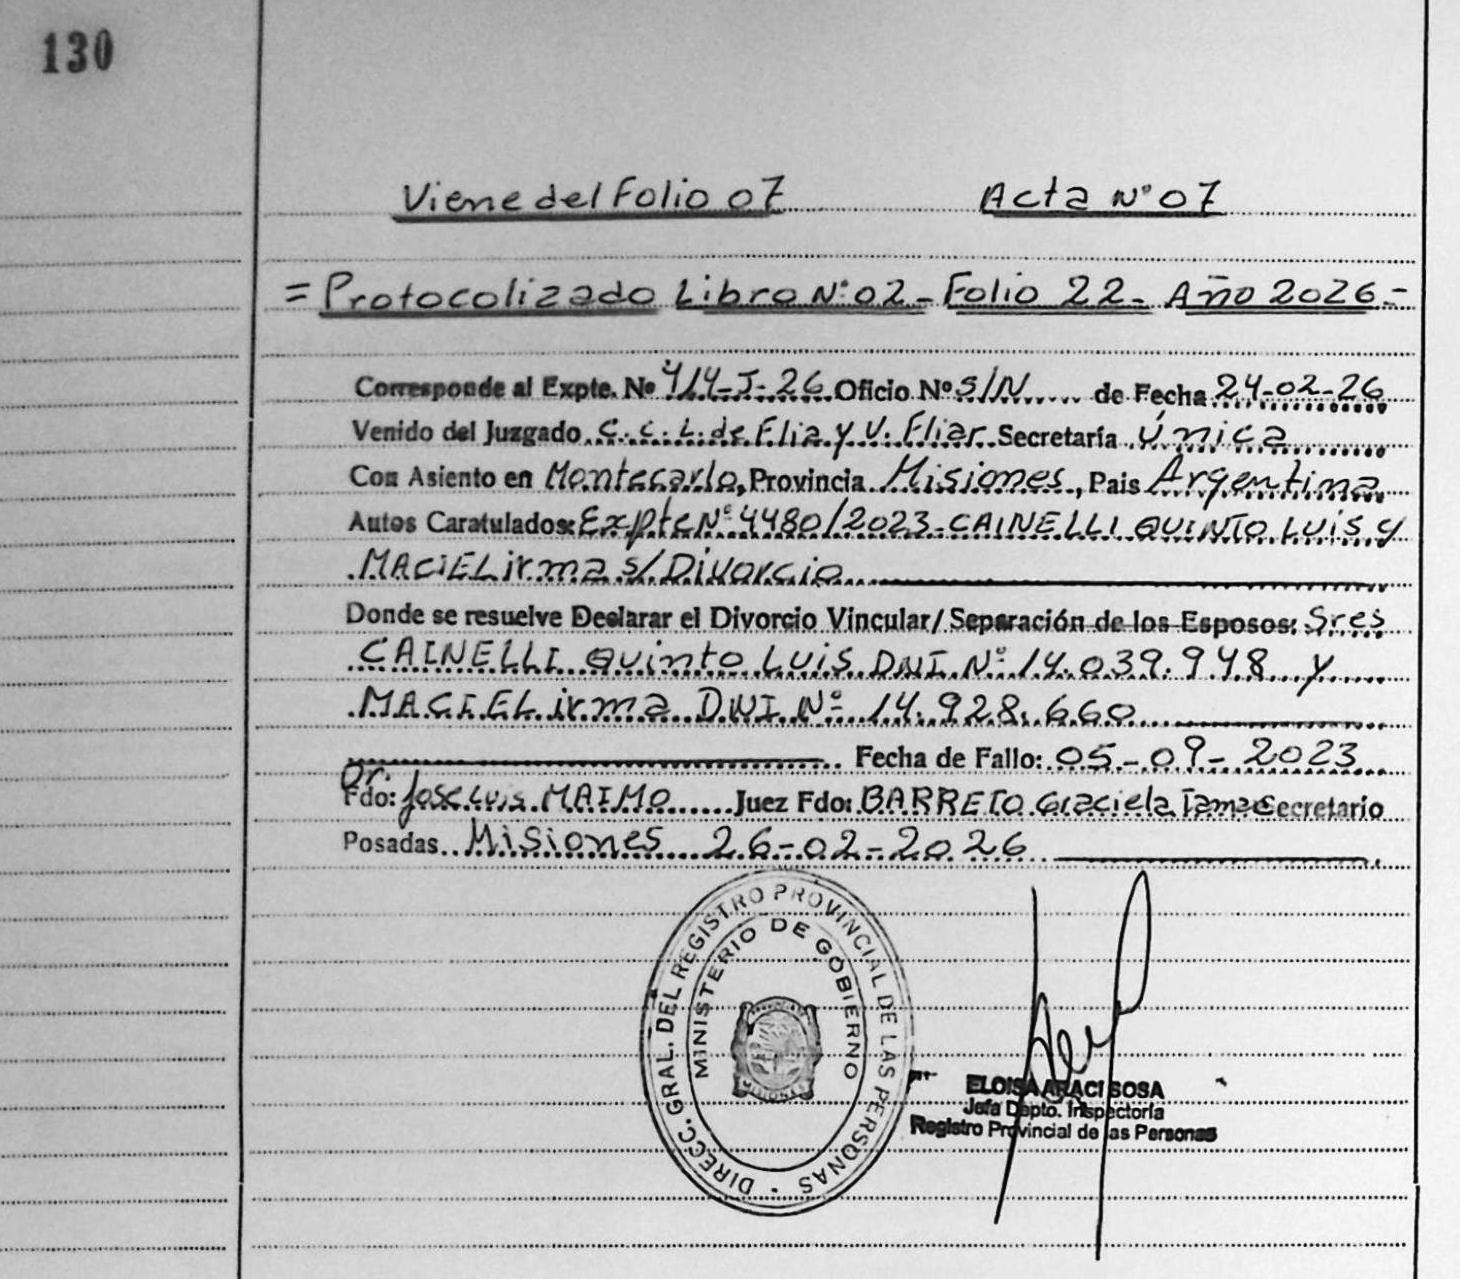 130
Viene del Folio 07 Acta N° 07
= Protocolizado Libro N° 02 - Folio 22 - Año 2026 -
Corresponde al Expte. Nº 414-J-26 Oficio Nº S/N de Fecha 24-02-26
Venido del Juzgado C. C. L. de Flia y V. Fliar Secretaría Única
Con Asiento en Montecarlo, Provincia Misiones, Pais Argentina
Autos Caratulados: Expte N° 4480/2023 - CAINELLI QUINTO LUIS y
MACIEL irma s/ Divorcio
Donde se resuelve Declarar el Divorcio Vincular/ Separación de los Esposos: Sres
CAINELLI Quinto LUIS DNI N° 14.039.948 y
MACIEL irma DNI N° 14.928.660
Fecha de Fallo: 05-09-2023
Dr.
Fdo: José Luis MAIMO Juez Fdo: BARRETO Graciela Secretario
Posadas Misiones 26-02-2026
DIRECC. GRAL. DEL REGISTRO PROVINCIAL DE LAS PERSONAS
MINISTERIO DE GOBIERNO
MISIONES
ELOISA ARACI SOSA
Jefa Depto. Inspectoría
Registro Provincial de las Personas